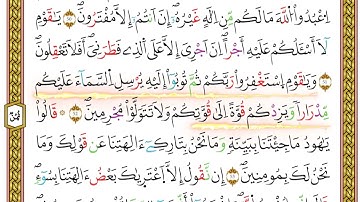 اعْبُدُوا اللَّهَ مَا لَكُم مِّنْ إِلَٰهٍ غَيْرُهُ إِنْ أَنتُمْ إِلَّا مُفْتَرُونَ ۝ يَٰقَوْمِ
لَا أَسْـَٔلُكُمْ عَلَيْهِ أَجْرًا إِنْ أَجْرِيَ إِلَّا عَلَى الَّذِي فَطَرَنِي أَفَلَا تَعْقِلُونَ
۝ وَيَٰقَوْمِ اسْتَغْفِرُوا رَبَّكُمْ ثُمَّ تُوبُوا إِلَيْهِ يُرْسِلِ السَّمَاءَ عَلَيْكُم
مِّدْرَارًا وَيَزِدْكُمْ قُوَّةً إِلَىٰ قُوَّتِكُمْ وَلَا تَتَوَلَّوْا مُجْرِمِينَ ۝ قَالُوا
يَٰهُودُ مَا جِئْتَنَا بِبَيِّنَةٍ وَمَا نَحْنُ بِتَارِكِي آلِهَتِنَا عَن قَوْلِكَ وَمَا
نَحْنُ لَكَ بِمُؤْمِنِينَ ۝ إِن نَّقُولُ إِلَّا اعْتَرَىٰكَ بَعْضُ آلِهَتِنَا بِسُوءٍ